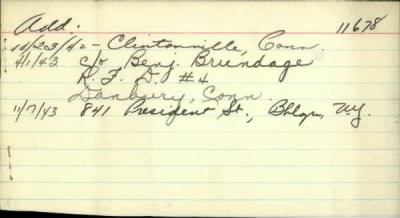 Add. 11678
10/23/42 - Clintonville, Conn.
4/1/43 c/o Benj. Brundage
R. F. D. #4
Danbury, Conn.
11/17/43 841 President St., Bklyn, NY.